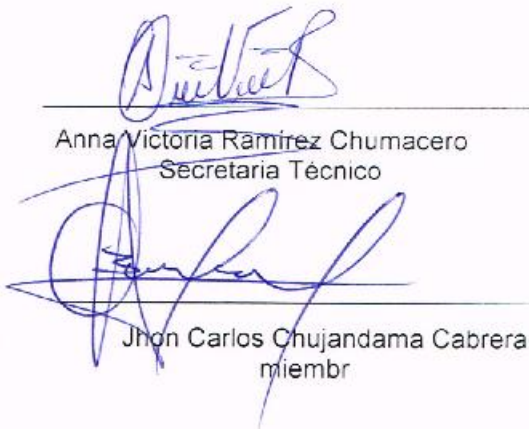 Anna Victoria Ramírez Chumacero
Secretaria Técnico
Jhon Carlos Chujandama Cabrera
miembr